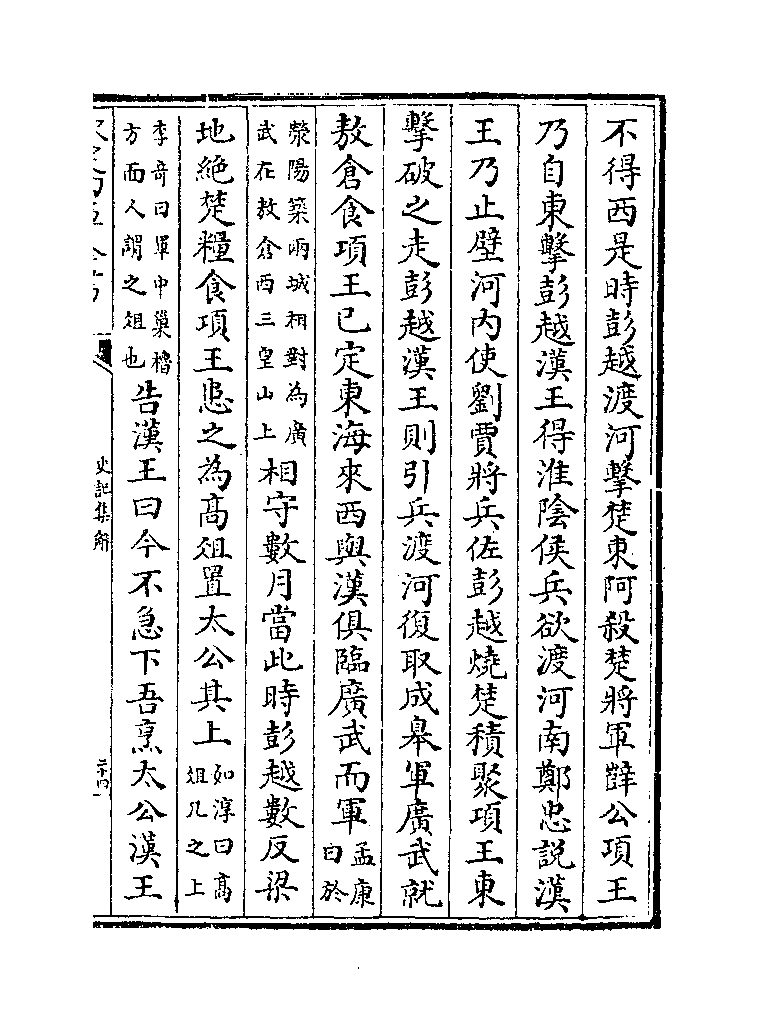 不得西是時彭越渡河擊楚東阿殺楚將軍薛公項王
乃自東擊彭越漢王得淮陰侯兵欲渡河南鄭忠説漢
王乃止壁河内使劉賈將兵佐彭越燒楚積聚項王東
擊破之走彭越漢王則引兵渡河復取成臯軍廣武就
敖倉食項王已定東海來西與漢俱臨廣武而軍孟康曰於
滎陽築兩城相對為廣武在敖倉西三皇山上相守數月當此時彭越數反梁
地絶楚糧食項王患之為髙俎置太公其上如淳曰髙俎几之上
李竒曰軍中巢櫓方而人謂之俎也告漢王曰今不急下吾烹太公漢王
史記集解
二十四